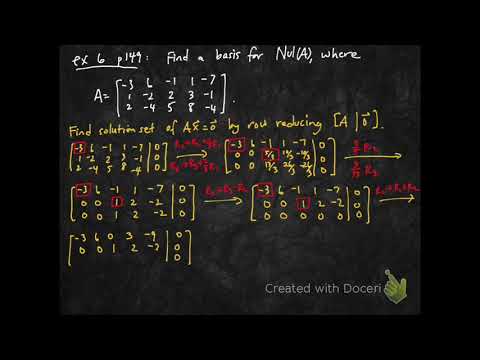 ex 6 p149: Find a basis for Nul(A), where
A = [-3 6 -1 1 -7
1 -2 2 3 -1
2 -4 5 8 -4].
Find solution set of Ax⃗=0⃗ by row reducing [A | 0⃗].
[-3 6 -1 1 -7 | 0
1 -2 2 3 -1 | 0
2 -4 5 8 -4 | 0]
[-3 6 -1 1 -7 | 0
0 0 5/3 10/3 -10/3 | 0
0 0 13/3 26/3 -26/3 | 0]
[-3 6 -1 1 -7 | 0
0 0 1 2 -2 | 0
0 0 1 2 -2 | 0]
[-3 6 -1 1 -7 | 0
0 0 1 2 -2 | 0
0 0 0 0 0 | 0]
[-3 6 0 3 -9 | 0
0 0 1 2 -2 | 0
0]
Created with Doceri